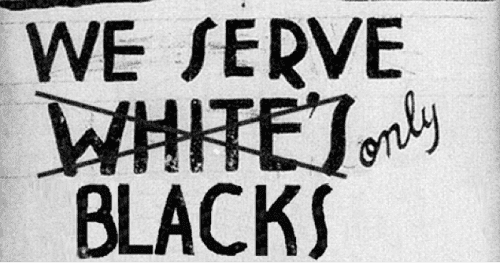 WE SERVE
WHITE'S only
BLACKS